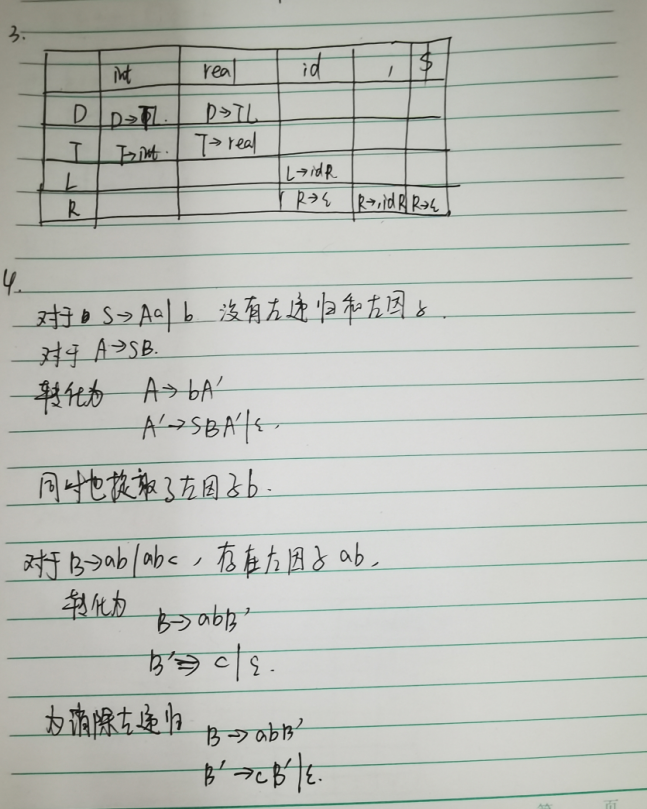 3.
int real id , $
D D→TL D→TL
T T→int T→real
L L→idR
R R→ε R→,idR R→ε
4.
对于 S→Aa|b 没有左递归和左因子.
对于 A→SB.
转化为 A→bA'
A'→SBA'|ε.
同时也提取了左因子b.
对于B→ab|abc，存在左因子ab,
转化为 B→abB'
B'→c|ε.
为消除左递归 B→abB'
B'→cB'|ε.
第 页